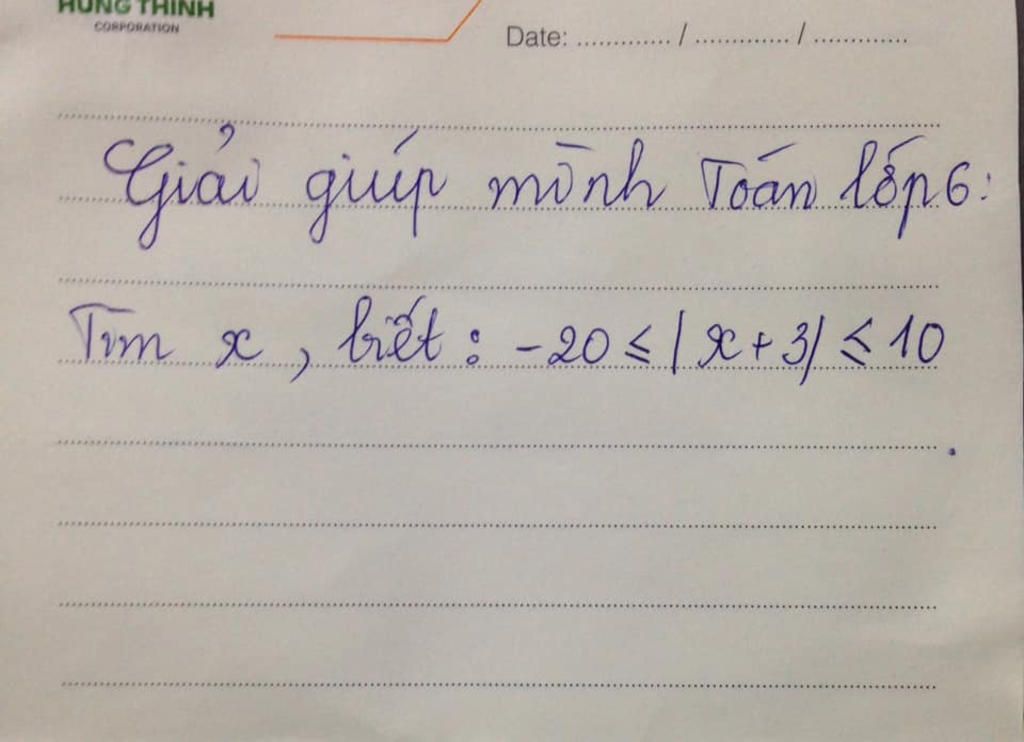 HƯNG THỊNH
CORPORATION
Date: ............. / ............. / .............
Giải giúp mình Toán lớp 6:
Tìm x, biết: -20 ≤ |x+3| ≤ 10